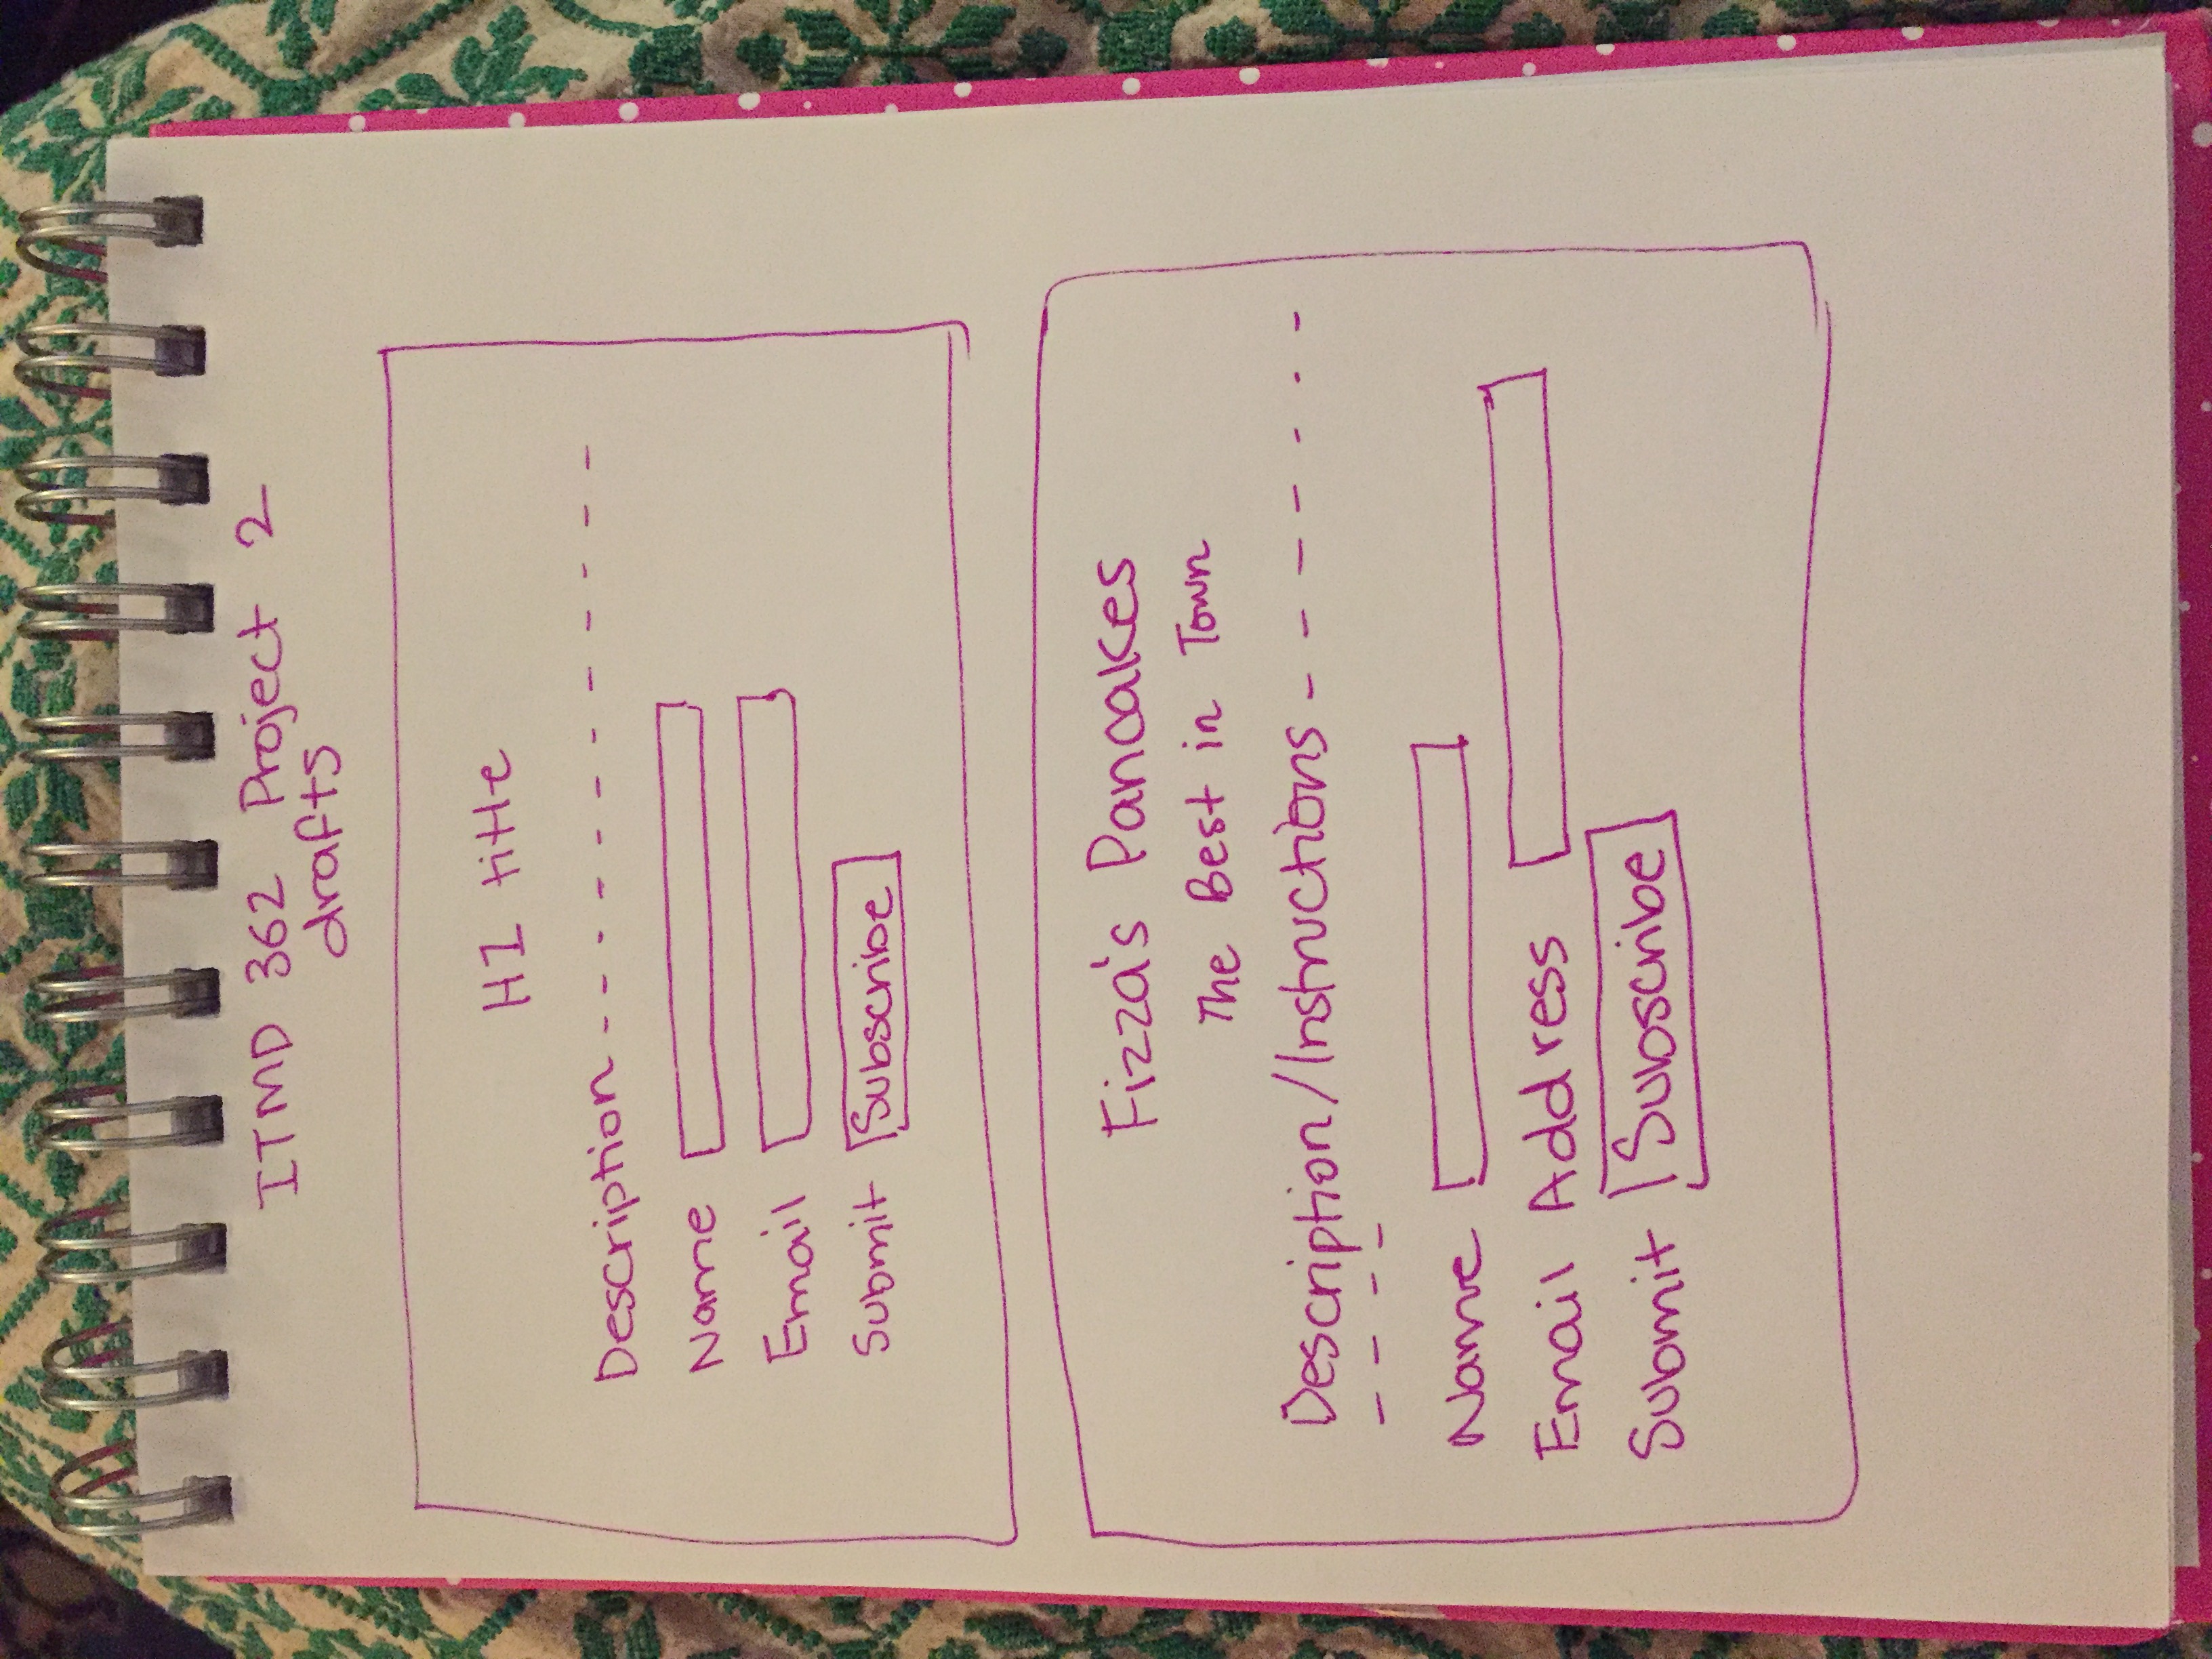 ITMD 362 Project 2
drafts
H1 title
Description - - - - - - - - - - - - -
Name
Email
Submit Subscribe
Fizza's Pancakes
The Best in Town
Description/Instructions - - - - - - -
- - - -
Name
Email Address
Submit Subscribe